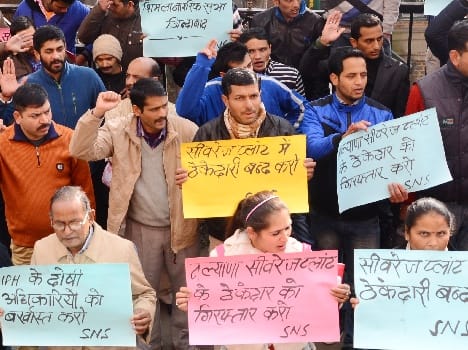 शिमला नागरिक सभा
जिन्दाबाद
सीवरेज प्लांट में
ठेकेदारी बन्द करो
सीवरेज प्लांट
के ठेकेदार को
गिरफ्तार करो
SNS
IPH के दोषी
अधिकारियों को
बर्खास्त करो
SNS
मल्याणा सीवरेज प्लांट
के ठेकेदार को
गिरफ्तार करो
SNS
सीवरेज प्लांट
ठेकेदारी बन्द
SNS